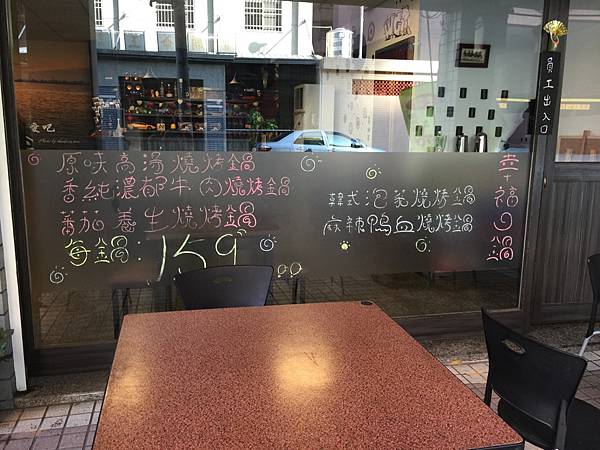 愛吧
原味高湯燒烤鍋
香純濃郁牛肉燒烤鍋
蕃茄養生燒烤鍋
每鍋：159
韓式泡菜燒烤鍋
麻辣鴨血燒烤鍋
幸福鍋
員工出入口